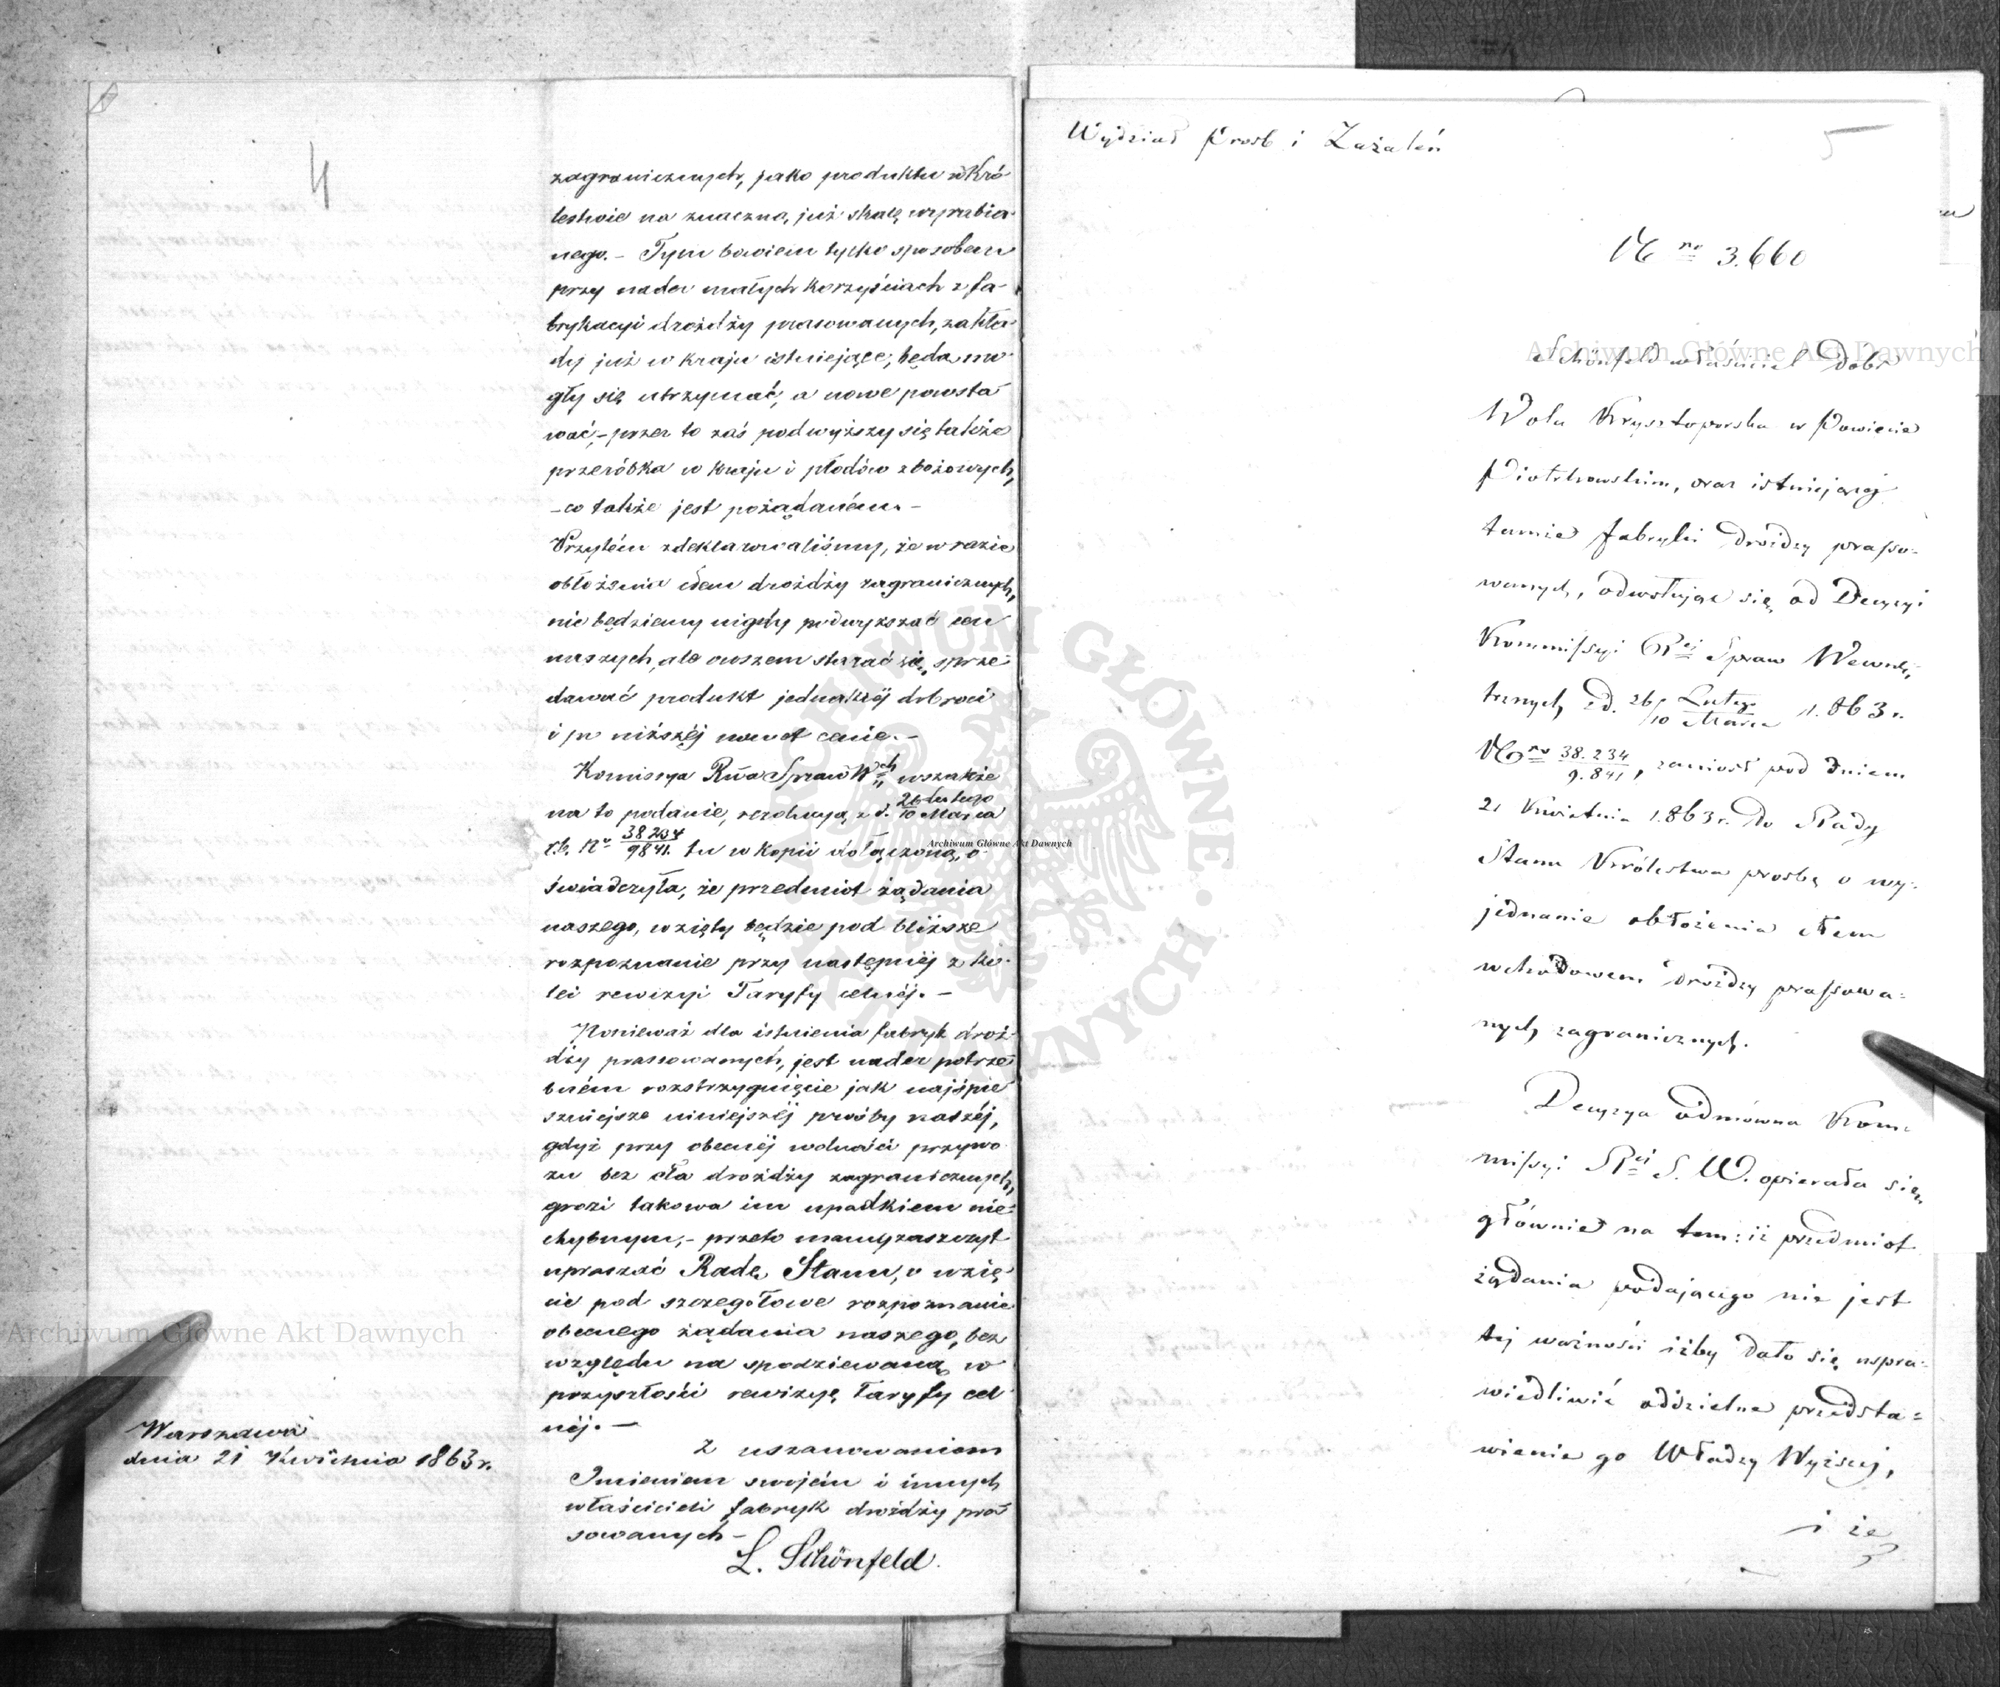 4
zagranicznych, jako produktu w Kró-
lestwie na znaczną, już skalę wyrabia-
nego. – Tym bowiem tylko sposobem
przy nader małych korzyściach z fa-
brykacyi drożdży prasowanych, zakła-
dy już w kraju istniejące, będą mo-
gły się utrzymać, a nowe powsta-
wać, – przez to zaś podwyższy się także
przeróbka w kraju i płodów zbożowych,
– co także jest pożądaném. –
Przytém zdeklarowaliśmy, że w razie
obłożenia cłem drożdży zagranicznych,
nie będziemy nigdy podwyższać cen
naszych, ale owszem starać się, sprze-
dawać produkt jednakiéj dobroci
i po niższéj nawet cenie. –
Komissya Rząa Spraw Wch wszakże
na to podanie, rezolucyą z d. 26 Lutego/10 Marca
r.b. No 38234/9841. tu w kopii dołączoną, o-
świadczyła, że przedmiot żądania
naszego, wzięty będzie pod bliższe
rozpoznanie przy następnéj z ko-
lei rewizyi Taryfy celnéj. –
Ponieważ dla istnienia fabryk droż-
dży prassowanych, jest nader potrze-
bném rozstrzygnięcie jak najśpie-
szniejsze niniejszéj prośby naszéj,
gdyż przy obecnéj wolności przywo-
zu bez cła drożdży zagranicznych,
grozi takowa im upadkiem nie-
chybnym, – przeto mamy zaszczyt
upraszać Radę Stanu, o wzię-
cie pod szczegółowe rozpoznanie
obecnego żądania naszego, bez
względu na spodziewaną w
przyszłości rewizyę Taryfy cel-
néj. –
Z uszanowaniem
Imieniem swojém i innych
właścicieli fabryk drożdży pra-
sowanych –
L. Schönfeld.
Warszawa
dnia 21 Kwietnia 1863 r.
Wydział Prośb i Zażaleń
5
No 3.660
Schönfeld właściciel Dóbr
Wola Krysztoporska w Powiecie
Piotrkowskim, oraz istniejącej
tamże fabryki drożdży prasso-
wanych, odwołując się od Decyzyi
Kommissyi Rej Spraw Wewnę-
trznych z d. 26 Lutego/10 Marca 1.863 r.
No 38.234/9.841, zaniosł pod dniem
21 Kwietnia 1.863 r. do Rady
Stanu Królestwa prośbę o wy-
jednanie obłożenia cłem
wchodowem drożdży prassowa-
nych zagranicznych.
Decyzya odmówna Kom-
missyi Rej S. W. opierała się,
głównie na tem: iż przedmiot
żądania podającego nie jest
tej ważności iżby dało się uspra-
wiedliwić oddzielne przedsta-
wienie go Władzy Wyższej,
i że
Archiwum Główne Akt Dawnych
Archiwum Główne Akt Dawnych
Archiwum Główne Akt Dawnych
ARCHIWUM GŁÓWNE AKT DAWNYCH